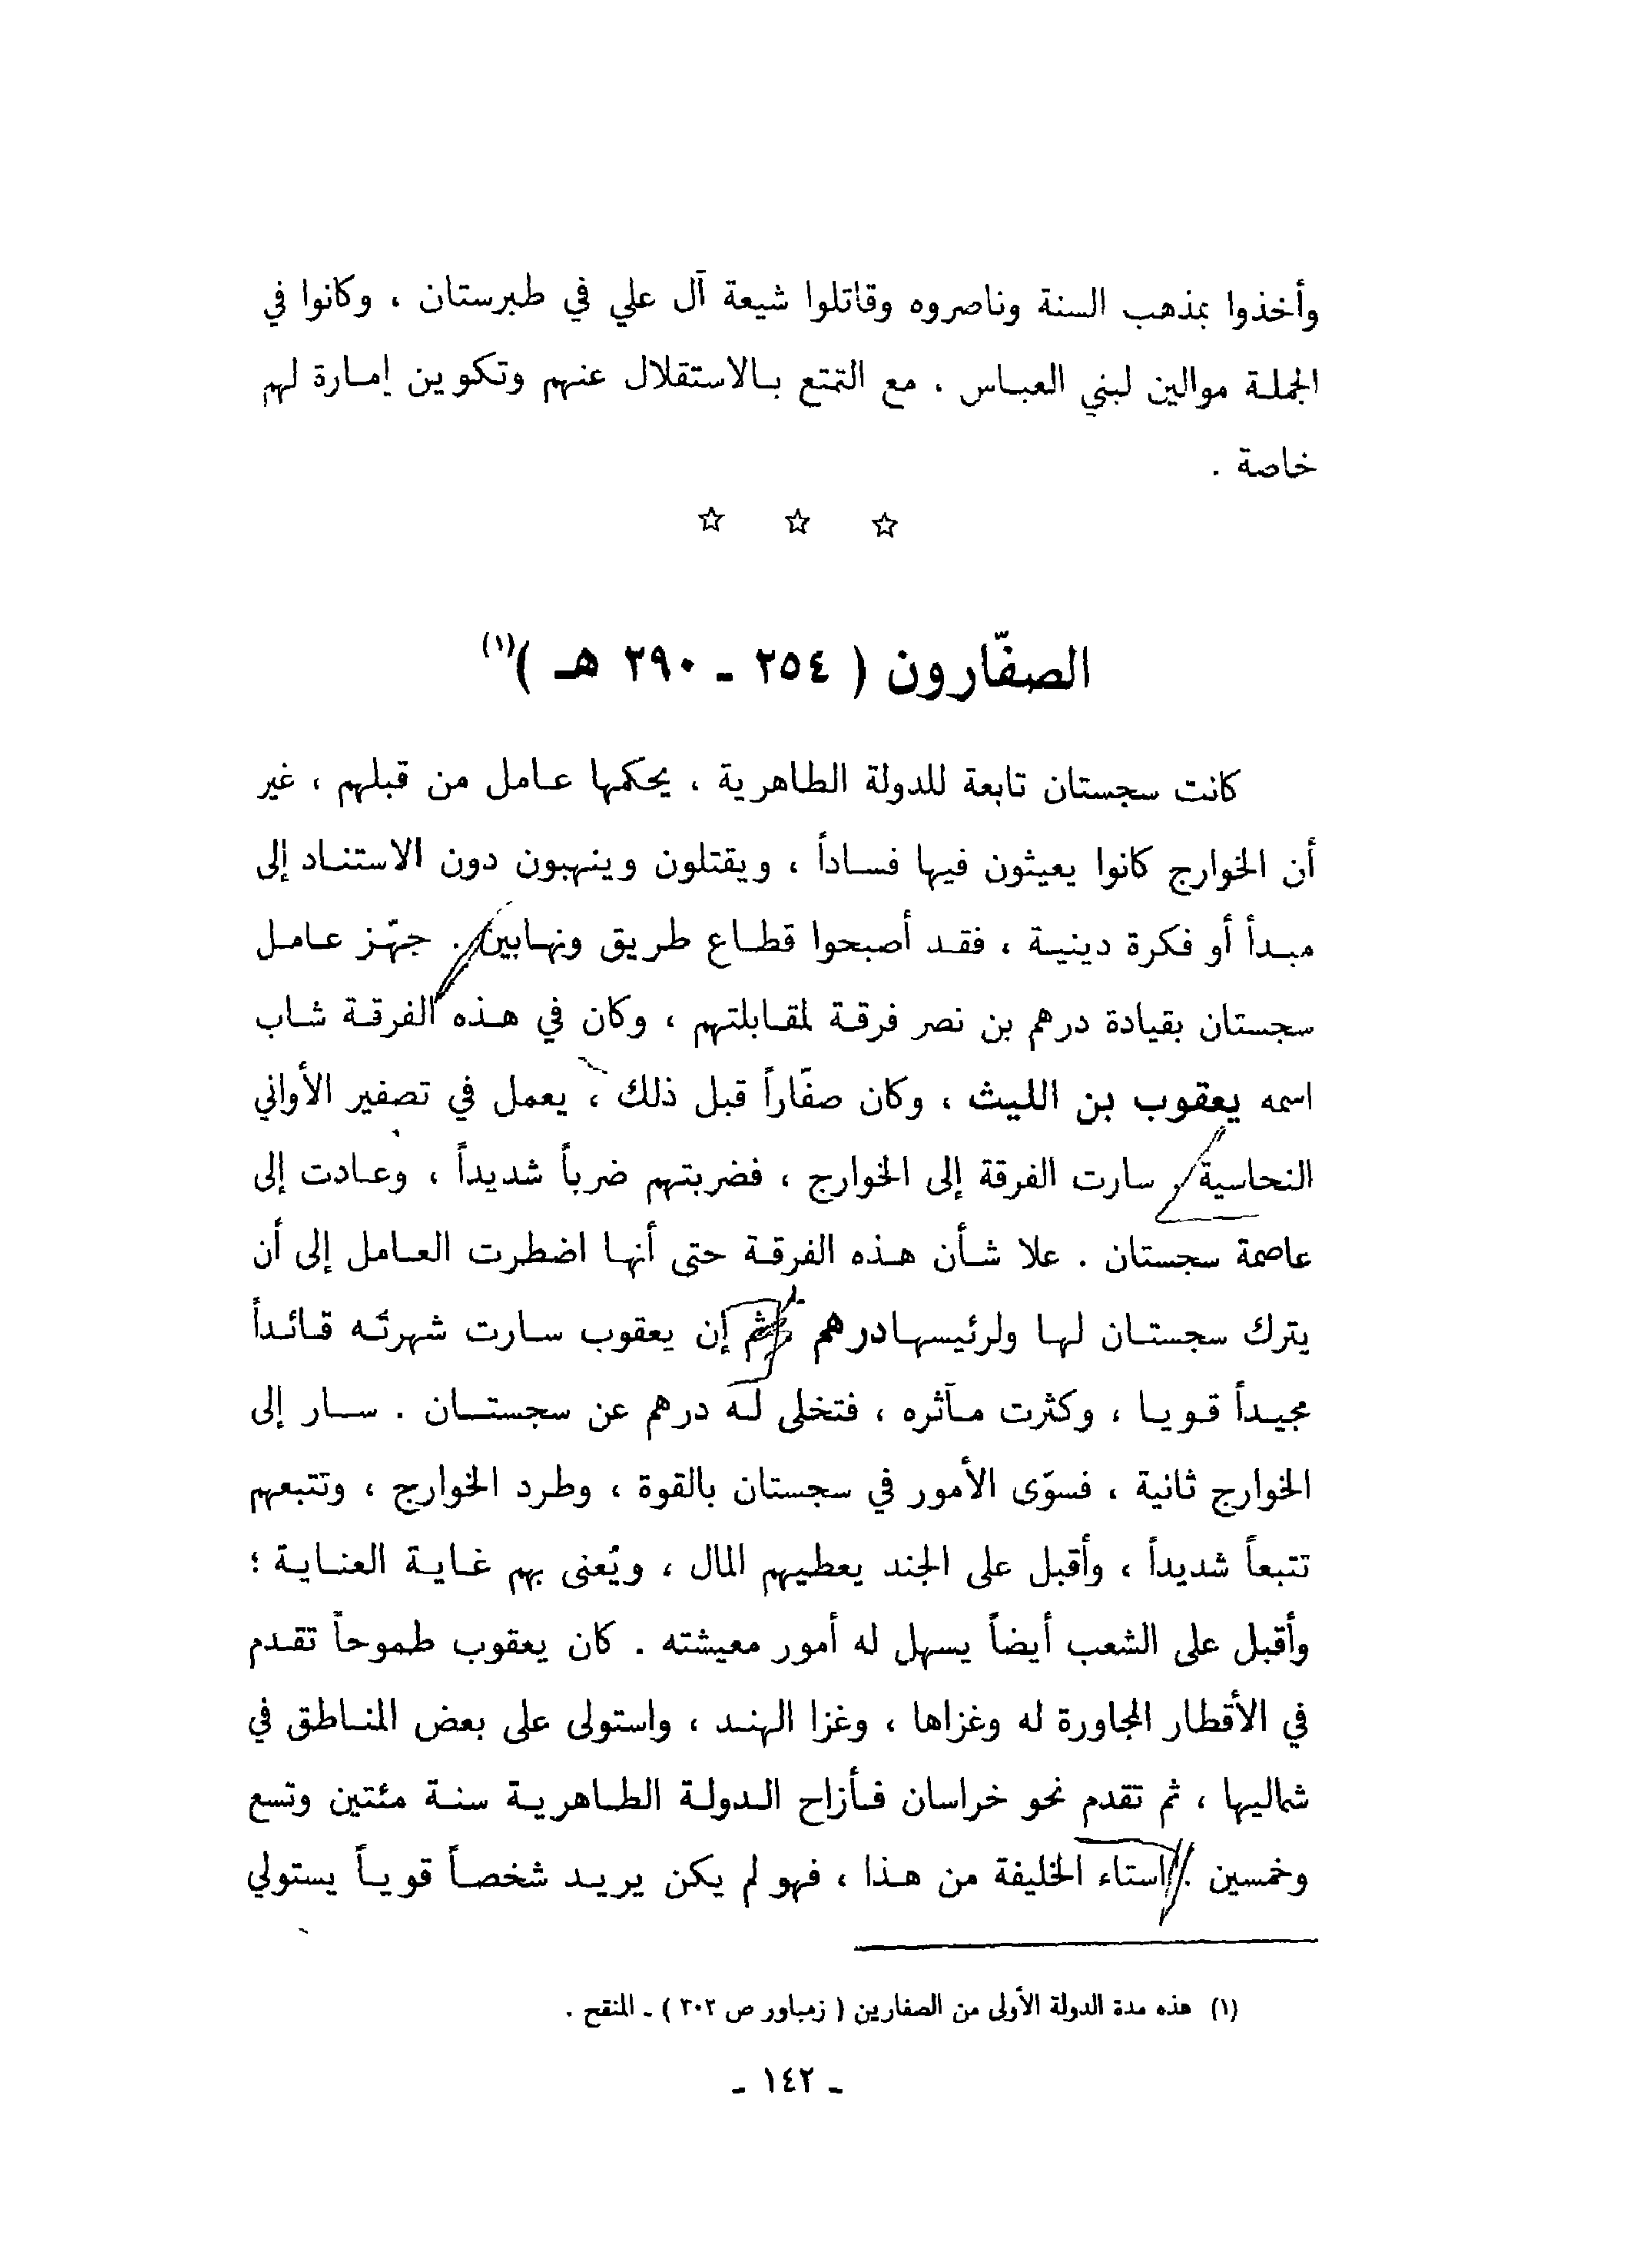 وأخذوا بمذهب السنة وناصروه وقاتلوا شيعة آل علي في طبرستان ، وكانوا في
الجملة موالين لبني العباس ، مع التمتع بالاستقلال عنهم وتكوين إمارة لهم
خاصة .
☆ ☆ ☆
الصفّارون ( ٢٥٤ - ٢٩٠ هـ )(١)
كانت سجستان تابعة للدولة الطاهرية ، يحكمها عامل من قبلهم ، غير
أن الخوارج كانوا يعيثون فيها فساداً ، ويقتلون وينهبون دون الاستناد إلى
مبدأ أو فكرة دينية ، فقد أصبحوا قطاع طريق ونهابين . جهّز عامل
سجستان بقيادة درهم بن نصر فرقة لمقابلتهم ، وكان في هذه الفرقة شاب
اسمه يعقوب بن الليث ، وكان صفّاراً قبل ذلك ، يعمل في تصفير الأواني
النحاسية . سارت الفرقة إلى الخوارج ، فضربتهم ضرباً شديداً ، وعادت إلى
عاصمة سجستان . علا شأن هذه الفرقة حتى أنها اضطرت العامل إلى أن
يترك سجستان لها ولرئيسها درهم ثم إن يعقوب سارت شهرتُه قائداً
مجيداً قويا ، وكثرت مآثره ، فتخلى له درهم عن سجستان . سار إلى
الخوارج ثانية ، فسوّى الأمور في سجستان بالقوة ، وطرد الخوارج ، وتتبعهم
تتبعاً شديداً ، وأقبل على الجند يعطيهم المال ، ويُعنى بهم غاية العناية ؛
وأقبل على الشعب أيضاً يسهل له أمور معيشته . كان يعقوب طموحاً تقدم
في الأقطار المجاورة له وغزاها ، وغزا الهند ، واستولى على بعض المناطق في
شماليها ، ثم تقدم نحو خراسان فأزاح الدولة الطاهرية سنة مئتين وتسع
وخمسين . استاء الخليفة من هذا ، فهو لم يكن يريد شخصاً قوياً يستولي
(١) هذه مدة الدولة الأولى من الصفارين ( زمباور ص ٣٠٢ ) - المنقح .
- ١٤٢ -